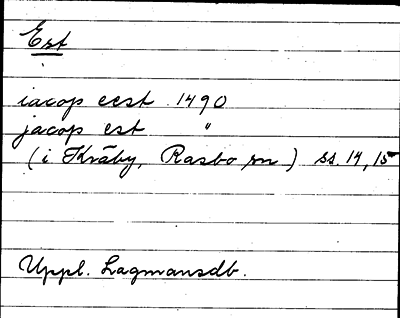 Est
iacop eest 1490
jacop est "
(i Kråby, Rasbo sn) ss. 14, 15
Uppl. Lagmansdb.